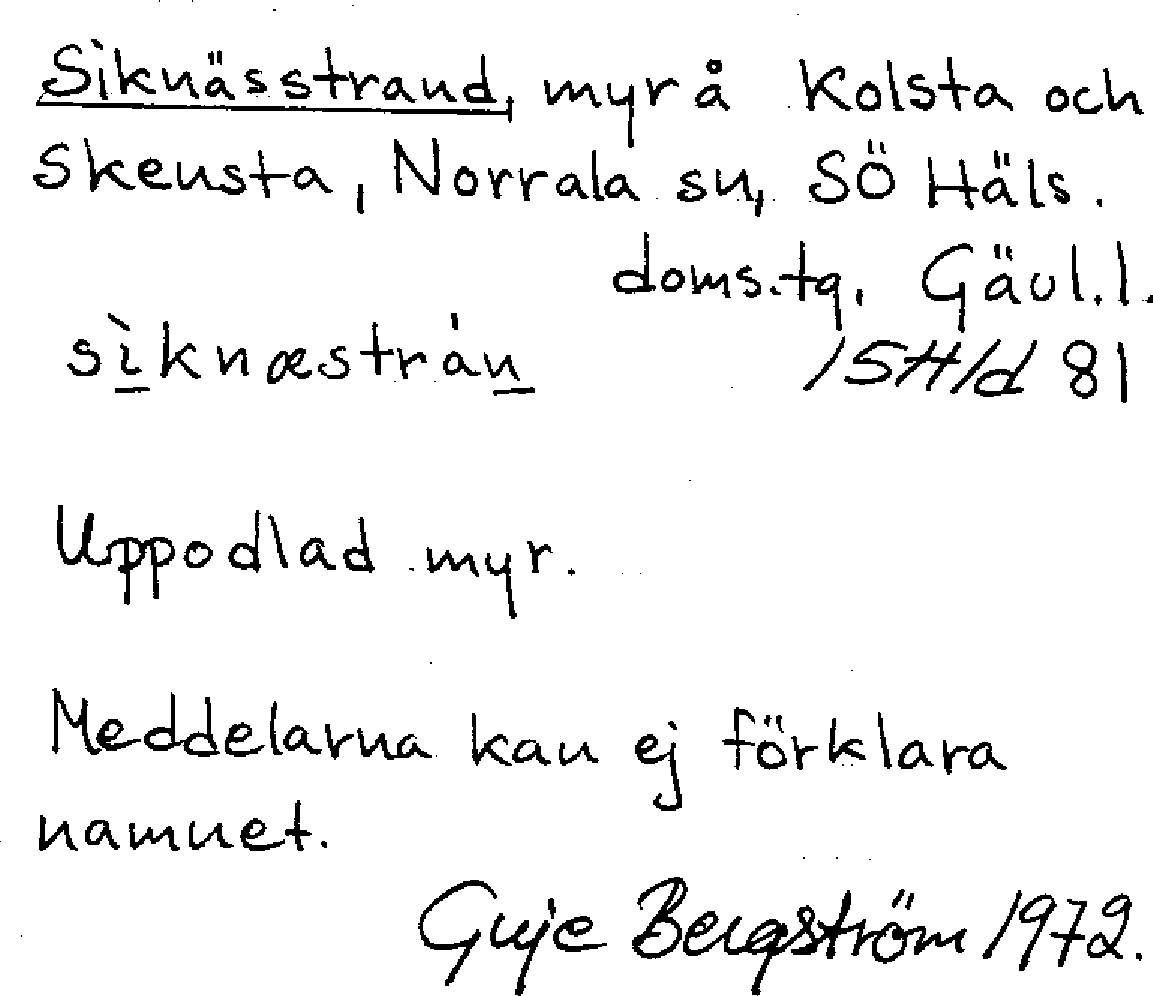 Siknässtrand, myr å Kolsta och
Skensta, Norrala sn, SÖ Häls.
doms.tg, Gävl.l.
sìknæstrån
15H/d 81
Uppodlad myr.
Meddelarna kan ej förklara
namnet.
Guje Bergström 1972.